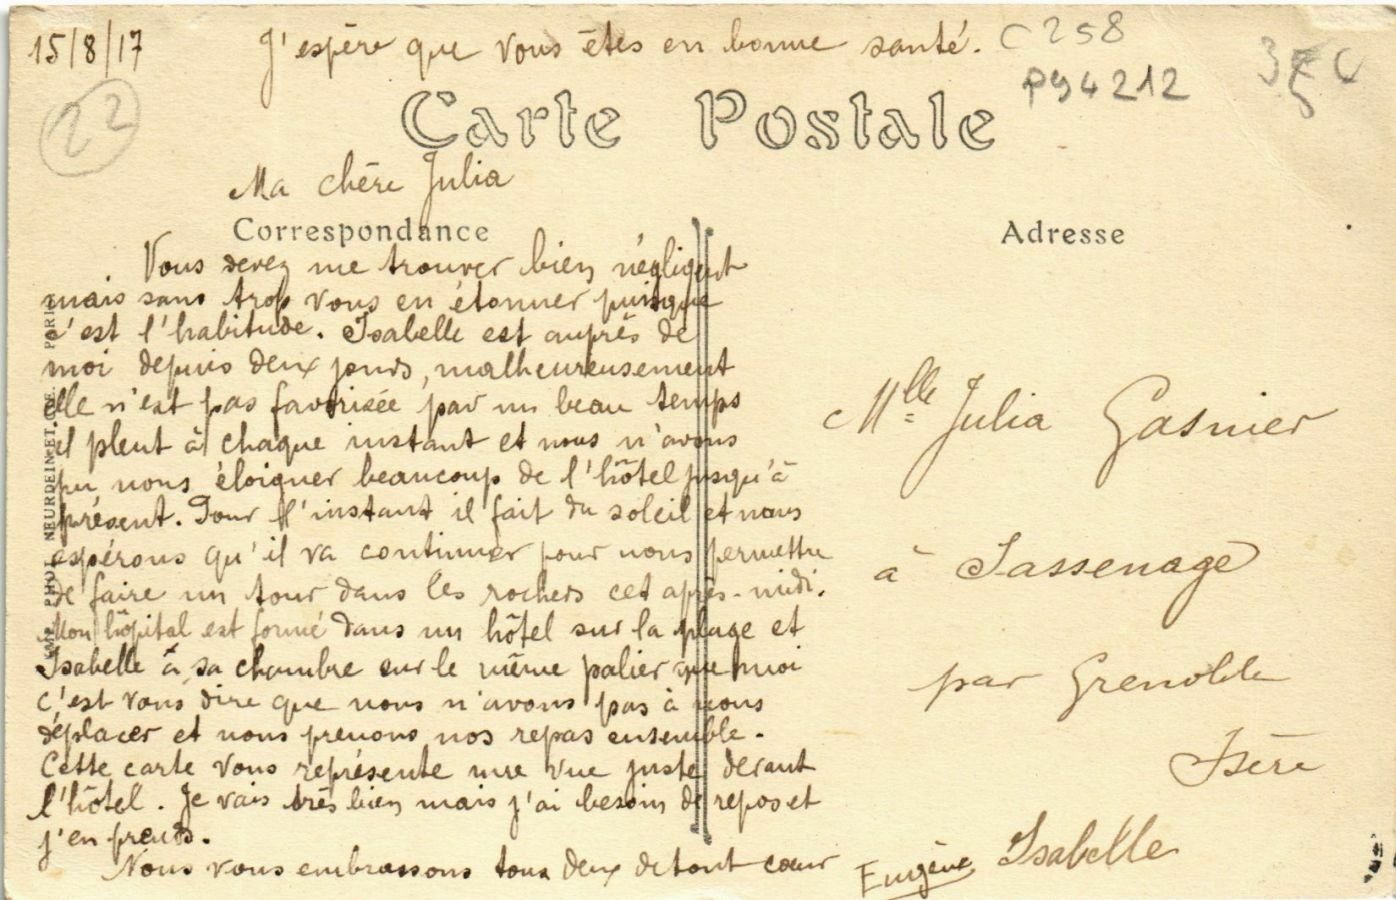 15/8/17
J'espère que vous êtes en bonne santé.
C258
P94212
22
Carte Postale
Ma chère Julia
Correspondance
Vous devez me trouver bien négligent
mais sans trop vous en étonner puisque
c'est l'habitude. Isabelle est auprès de
moi depuis deux jours, malheureusement
elle n'est pas favorisée par un beau temps
il pleut à chaque instant et nous n'avons
pu nous éloigner beaucoup de l'hôtel jusqu'à
présent. Pour l'instant il fait du soleil et nous
espérons qu'il va continuer pour nous permettre
de faire un tour dans les rochers cet après-midi.
Mon hôpital est formé dans un hôtel sur la plage et
Isabelle à sa chambre sur le même palier que moi
c'est vous dire que nous n'avons pas à nous
déplacer et nous prenons nos repas ensemble.
Cette carte vous représente une vue juste devant
l'hôtel. Je vais très bien mais j'ai besoin de repos et
j'en prends.
Nous vous embrassons tous deux de tout cœur
Eugène Isabelle
Adresse
Mlle Julia Gasnier
à Sassenage
par Grenoble
Isère
PHOT. NEURDEIN ET CIE. PARIS